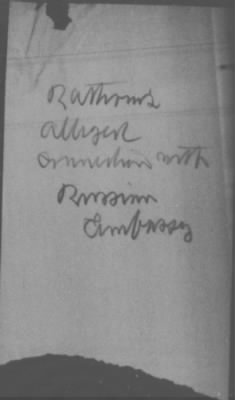 Rathom's
alleged
connection with
Russian
Embassy